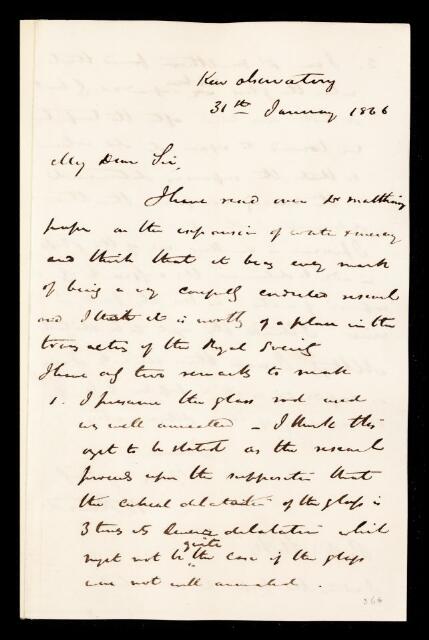 Kew observatory
31th January 1866
My Dear Sir,
I have read over Dr matthiesens
paper on the expansion of water & mercury
and think that it bears every mark
of being a very carefully conducted research
and I think it is worthy of a place in the
transactions of the Royal Society
I have only two remarks to make
1. I presume the glass rod used
was well annealed – I think this
ought to be stated as the research
proceeds upon the supposition that
the cubical dilatation of the glass is
3 times its linear dilatation which
might not be quite the case if the glass
were not well annealed.
364